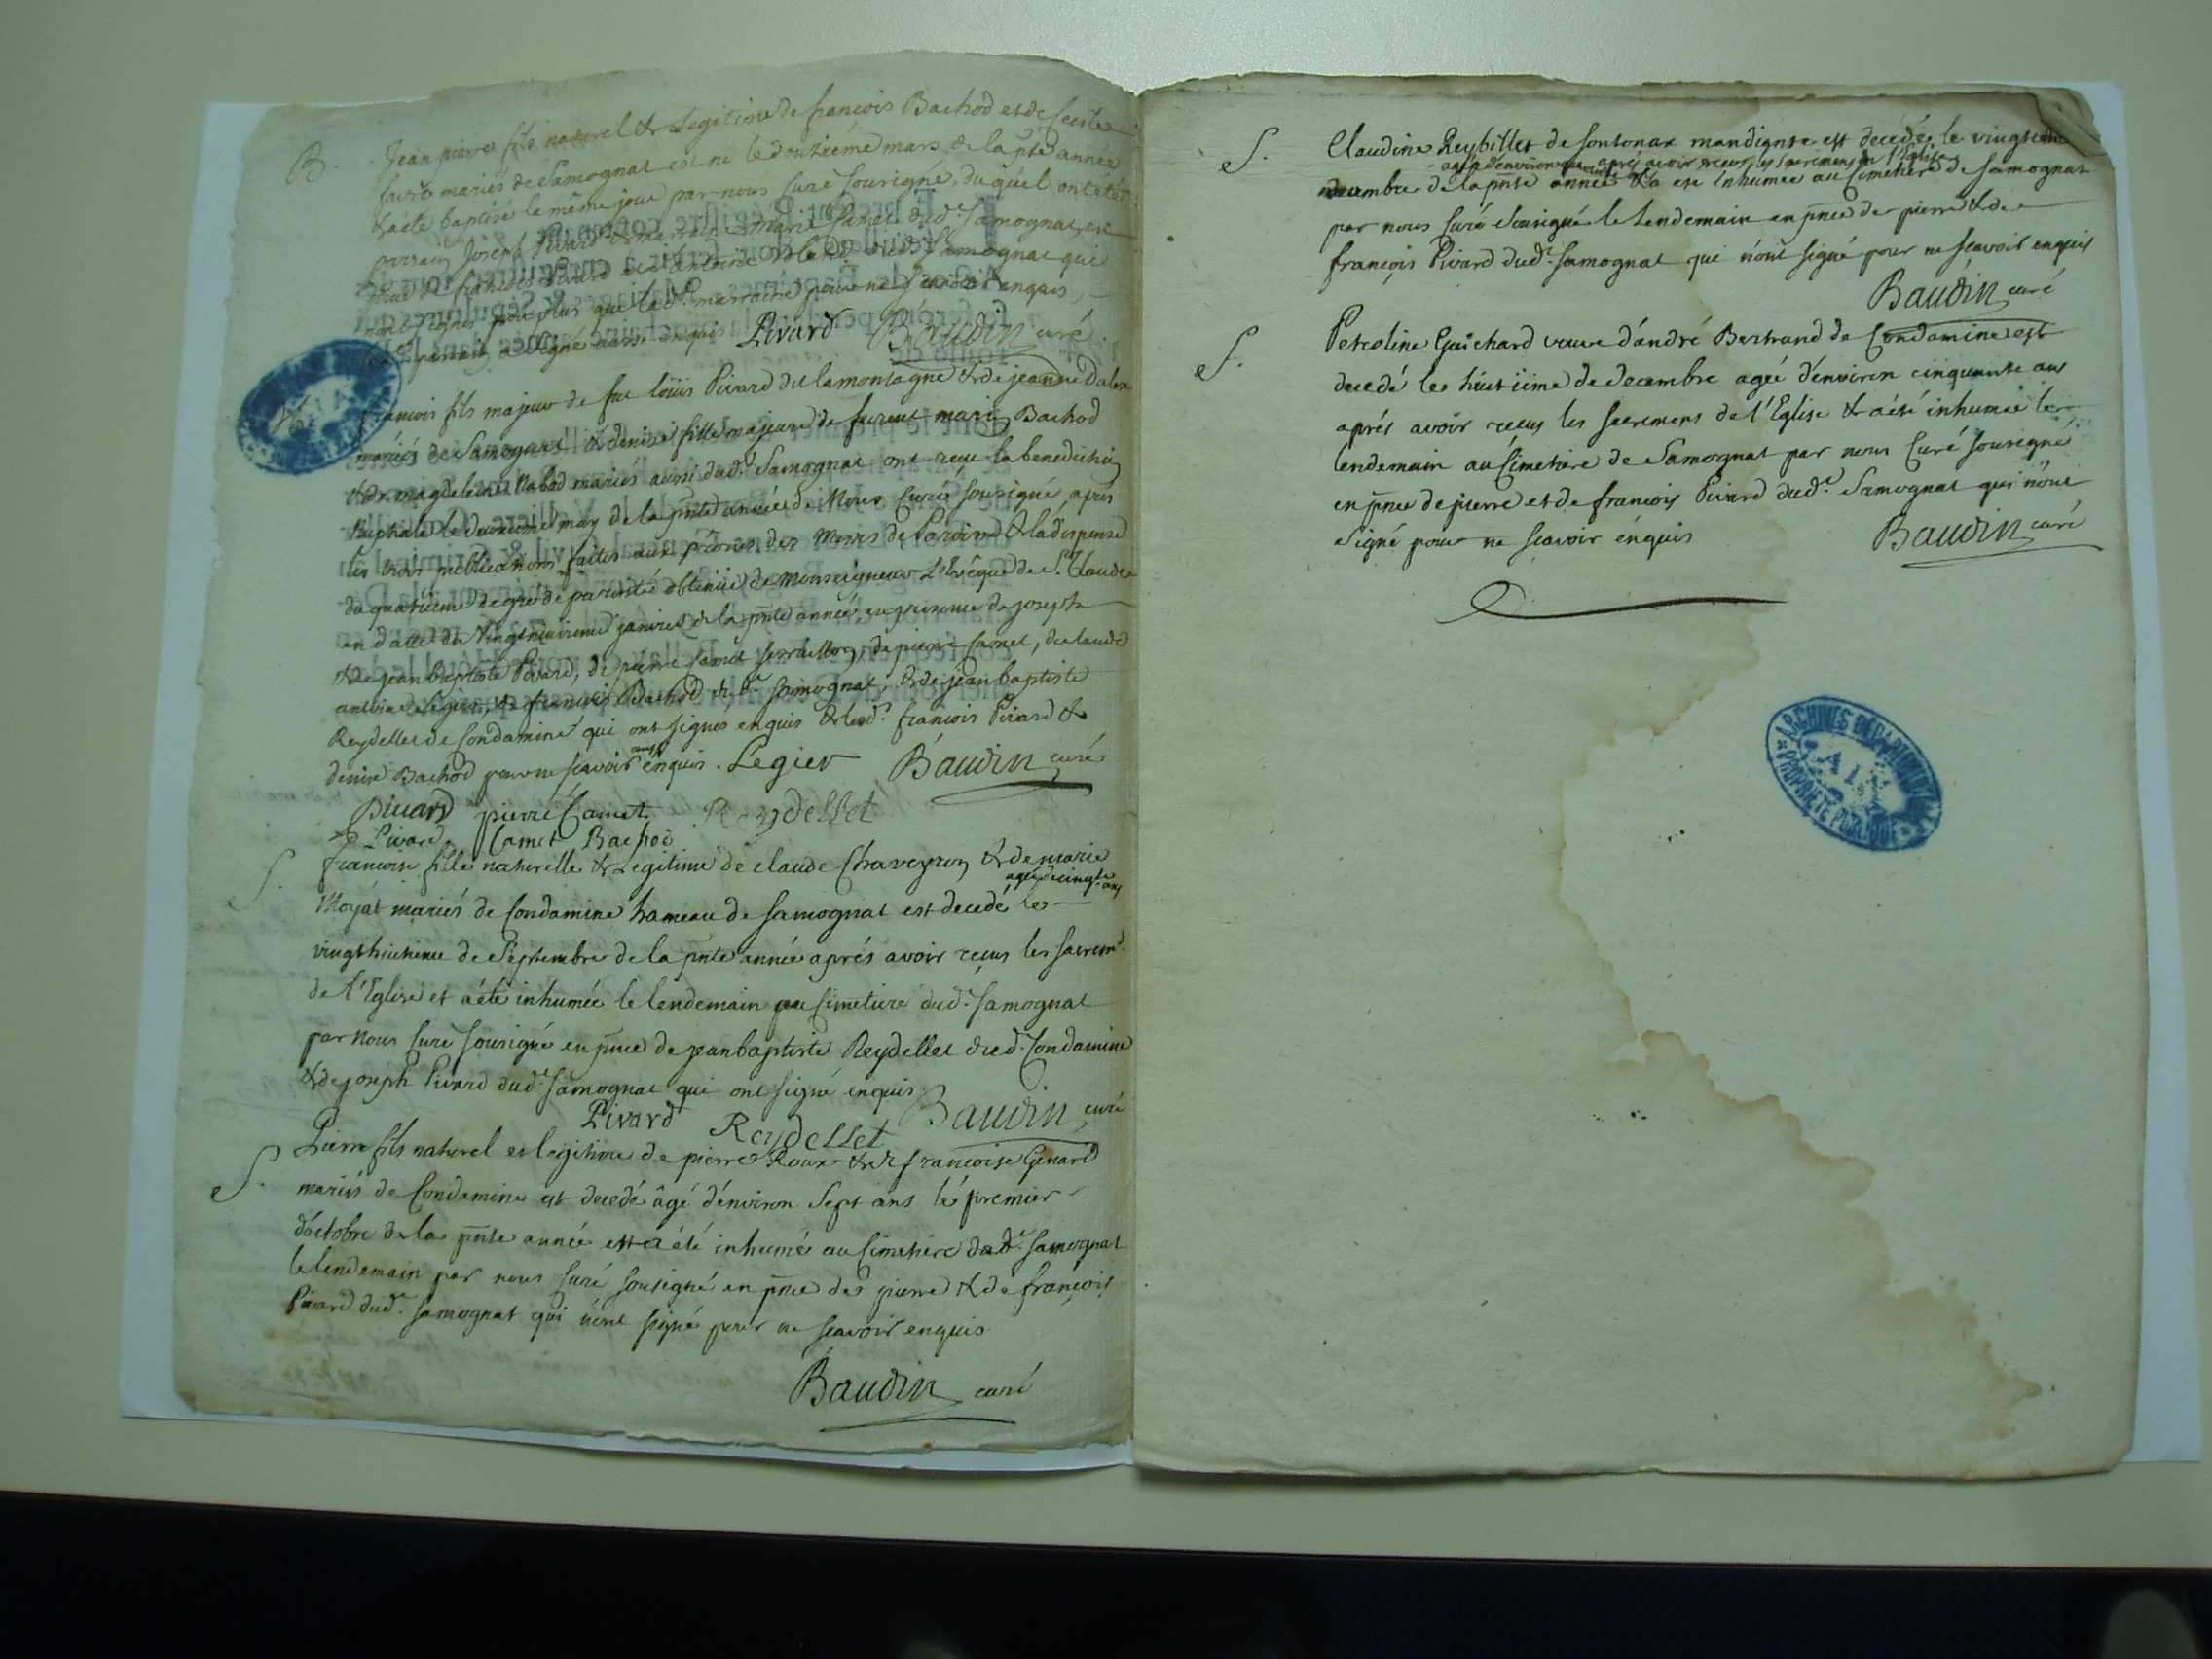 B. Jean pierre fils naturel & Legitime de françois Bachod et de
mariés de Samognat est né le douzième mars de la pnte année
& a eté baptisé le même jour par nous Curé sousigné, du quel ont eté
parrain Joseph Pivard & marraine marie Camet dud.t Samognat, en
Pivard et d'antoine dud.t Samognat qui
marraine pour ne sçavoir enquis,
parrain a signé enquis Pivard Baudin curé
françois fils majeur de feu loüis Pivard de lamontagne & de jeanne
mariés de Samognat & denise fille majeure de Bachod
& de magdeleine mariés aussi dud.t Samognat ont recu la benediction
Nuptiale le may de la pnte année de Nous Curé sousigné après
les trois publications faites aux prônes des Messes de Paroisse & la dispense
du quatrième degré de parenté obtenüe de Monseigneur L'Evêque de S.t Claude
en datte du Vingtneuvieme janvier de la pnte année, en presence de joseph
& de jean baptiste Pivard, de pierre Camet de pierre Camet, de claude
antoine Legier, & françois Bachod dud.t Samognat, & de jean baptiste
Reydellet de Condamine qui ont signés enquis & led.t françois Pivard &
denise Bachod pour ne sçavoir aussy enquis. Légier Baudin curé
Pivard pierre Camet Reydellet
Pivard Camet Bachod
S. francoise fille naturelle & Legitime de claude Chaveyron & de marie
agée de cinq ans
Moyat mariés de Condamine hameau de Samognat est decedé le
vingthuitieme de Septembre de la pnte année aprés avoir reçus les sacrem.s
de l'Eglise et a été inhumée le lendemain au Cimetiere dud.t Samognat
par nous Curé sousigné en pnce de jean baptiste Reydellet dud.t Condamine
& de joseph Pivard dud.t Samognat qui ont signé enquis
Pivard Reydellet Baudin curé
S. Pierre fils naturel et legitime de pierre Roux & de françoise Genard
mariés de Condamine est decedé âgé d'environ sept ans le premier
d'octobre de la pnte année et a été inhumé au Cimetiere dud.t Samognat
le lendemain par nous Curé sousigné en pnce de pierre & de françois
Pivard dud.t Samognat qui n'ont signé pour ne sçavoir enquis
Baudin curé
S. Claudine Reybillet de Sontonax mandiante est decedée le
agée d'environ aprés avoir recus les sacremens de l'Eglise
decembre de la pnte année & a eté inhumée au Cimetiere de Samognat
par nous Curé sousigné le lendemain en pnce de pierre & de
françois Pivard dud.t Samognat qui n'ont signé pour ne sçavoir enquis
Baudin curé
S. Petroline Guichard veuve d'andré Bertrand de Condamine est
decedé le huitiême de decembre agée d'environ cinquante ans
aprés avoir recus les sacremens de l'Eglise & a été inhumée le
lendemain au Cimetiere de Samognat par nous Curé sousigné
en pnce de pierre et de françois Pivard dud.t Samognat qui n'ont
signé pour ne sçavoir enquis Baudin curé
ARCHIVES DÉPARTEMENTALES
AIN
PROPRIÉTÉ PUBLIQUE